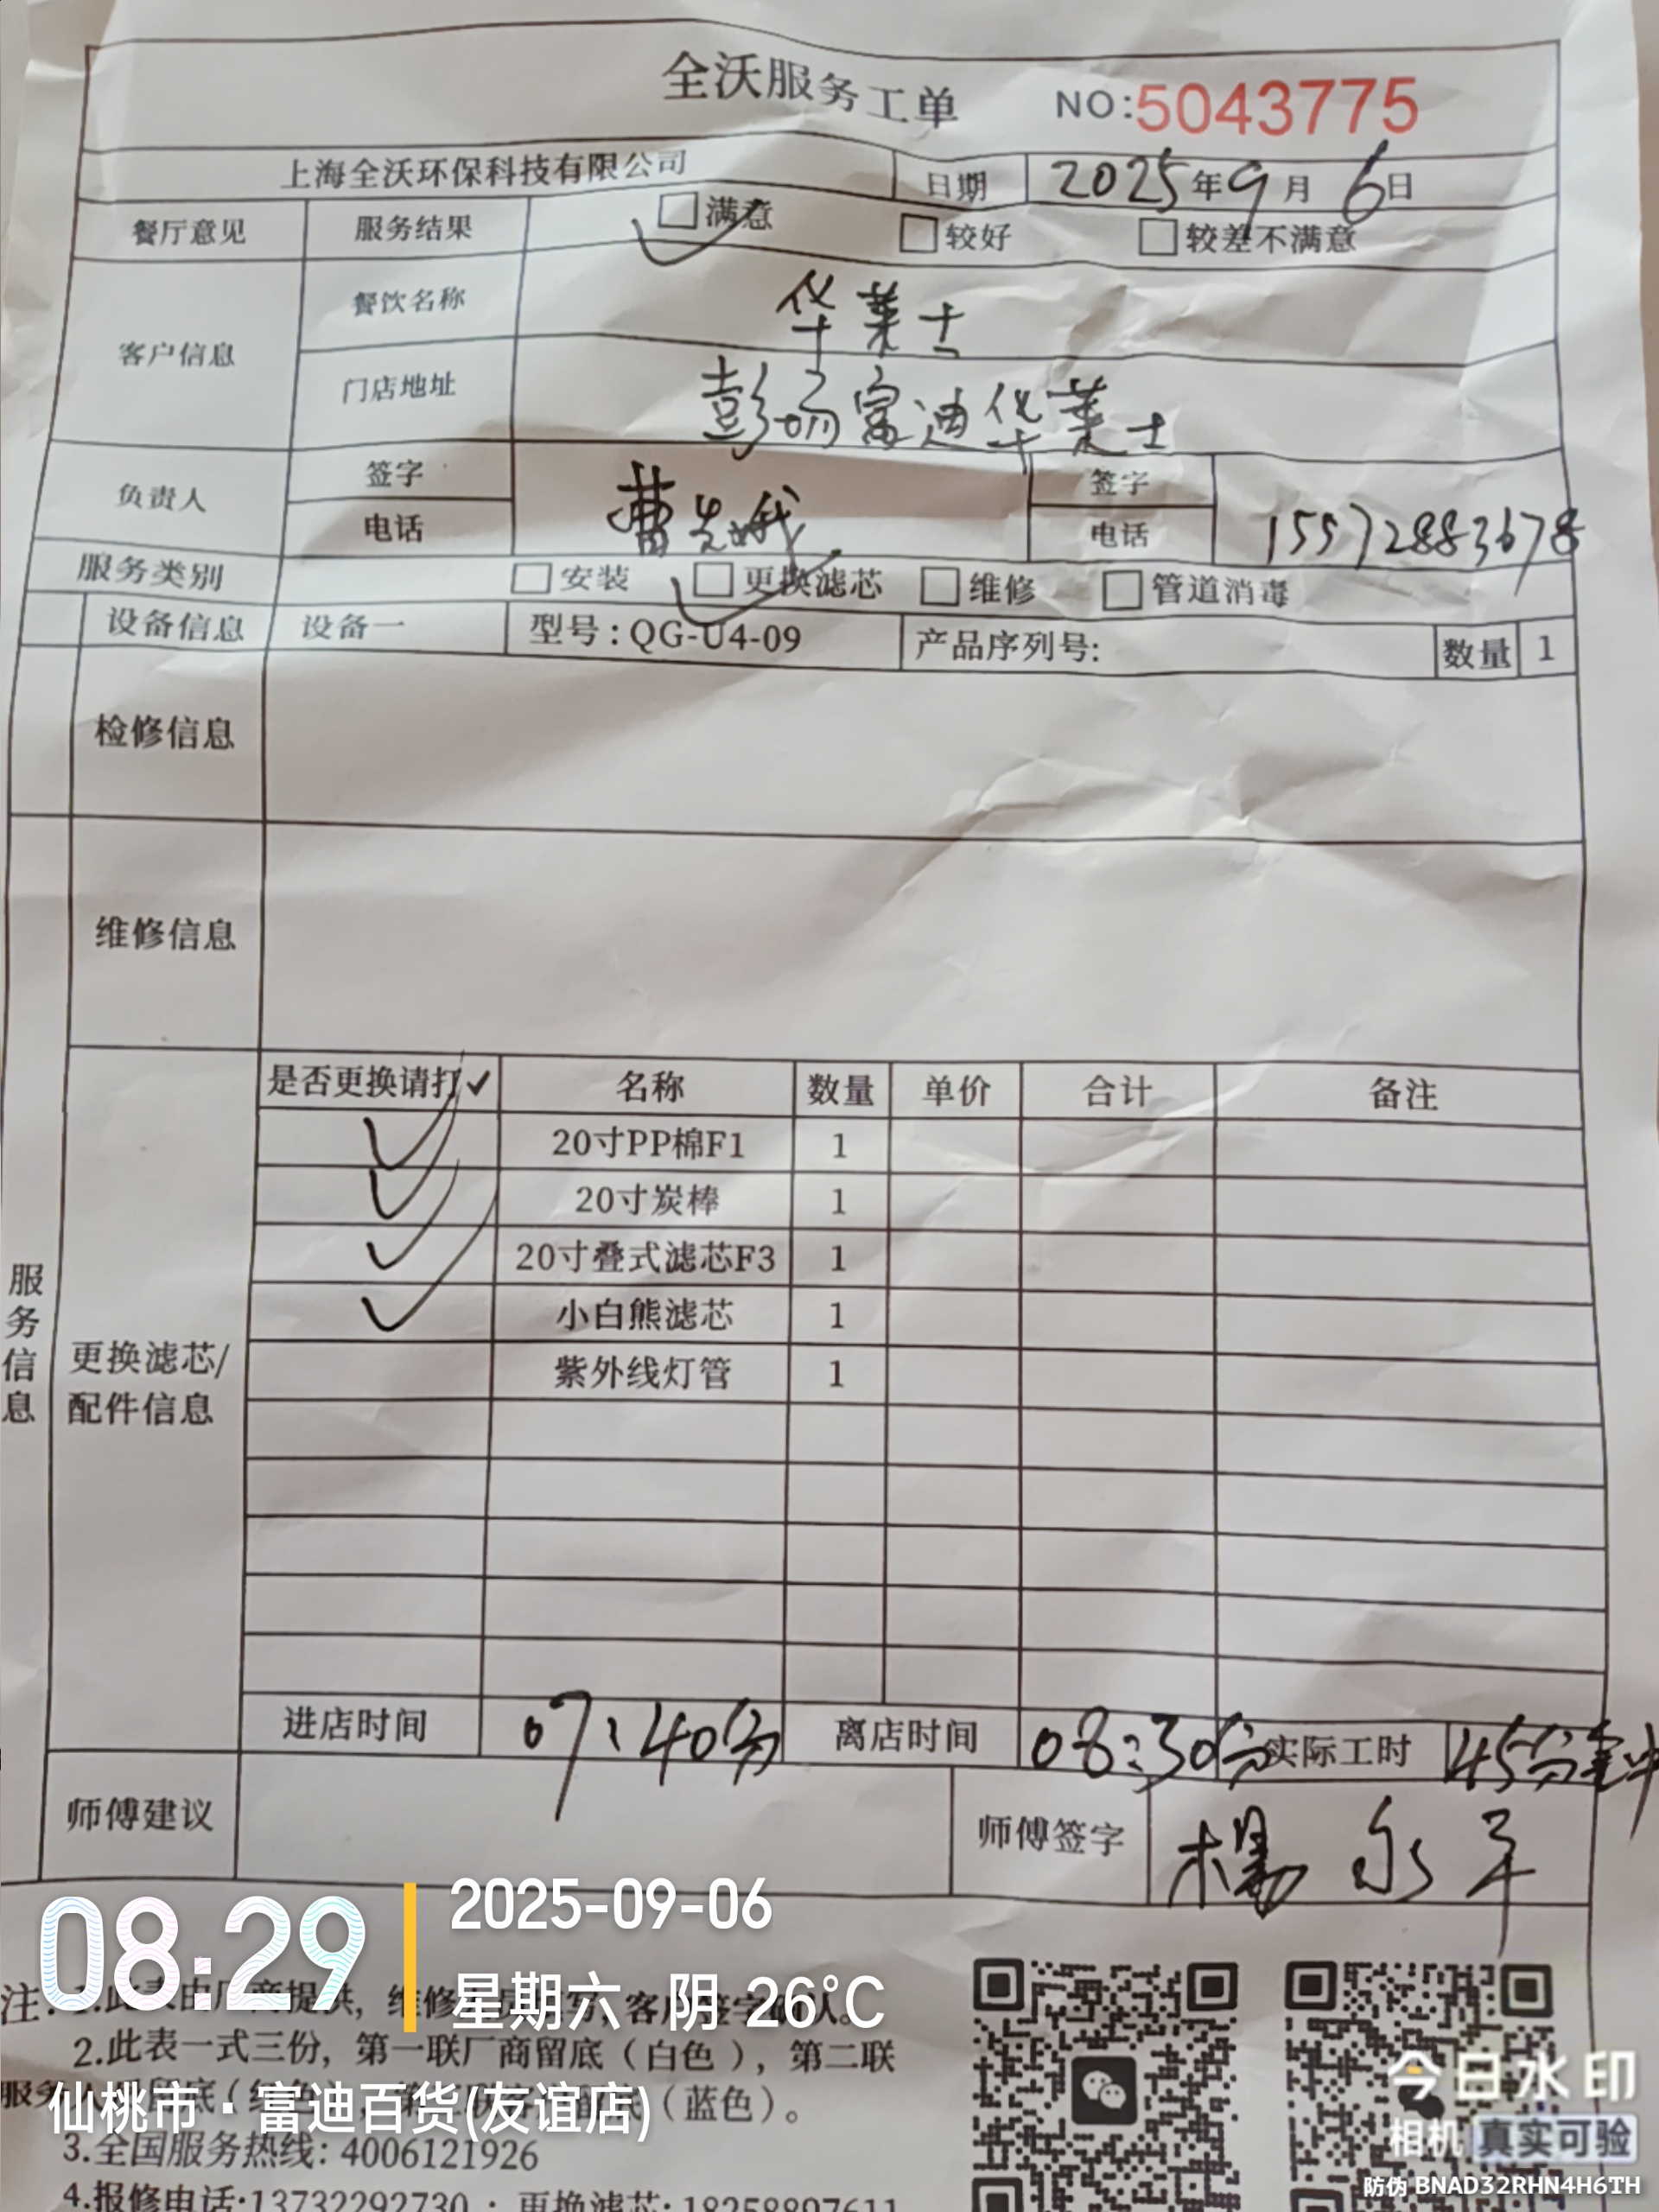 全沃服务工单 NO:5043775
上海全沃环保科技有限公司 日期 2025年9月6日
餐厅意见 服务结果 满意 较好 较差不满意
客户信息 餐饮名称 华莱士
门店地址 彭场富迪华莱士
负责人 签字 曹先娥 签字
电话 电话 15572883678
服务类别 安装 更换滤芯 维修 管道消毒
设备信息 设备一 型号:QG-U4-09 产品序列号: 数量 1
检修信息
维修信息
服务信息
更换滤芯/
配件信息
是否更换请打✓ 名称 数量 单价 合计 备注
✓ 20寸PP棉F1 1
✓ 20寸炭棒 1
✓ 20寸叠式滤芯F3 1
✓ 小白熊滤芯 1
紫外线灯管 1
进店时间 07:40分 离店时间 08:30分 实际工时 45分钟
师傅建议 师傅签字 杨永平
08:29
2025-09-06
星期六 阴 26°C
注:1.此表由厂商提供,维修 客户签字确认。
2.此表一式三份,第一联厂商留底(白色),第二联
服务 底( (蓝色)。
仙桃市·富迪百货(友谊店)
3.全国服务热线:4006121926
4.报修电话:13732292730;更换滤芯:18258897611
今日水印
相机 真实可验
防伪 BNAD32RHN4H6TH